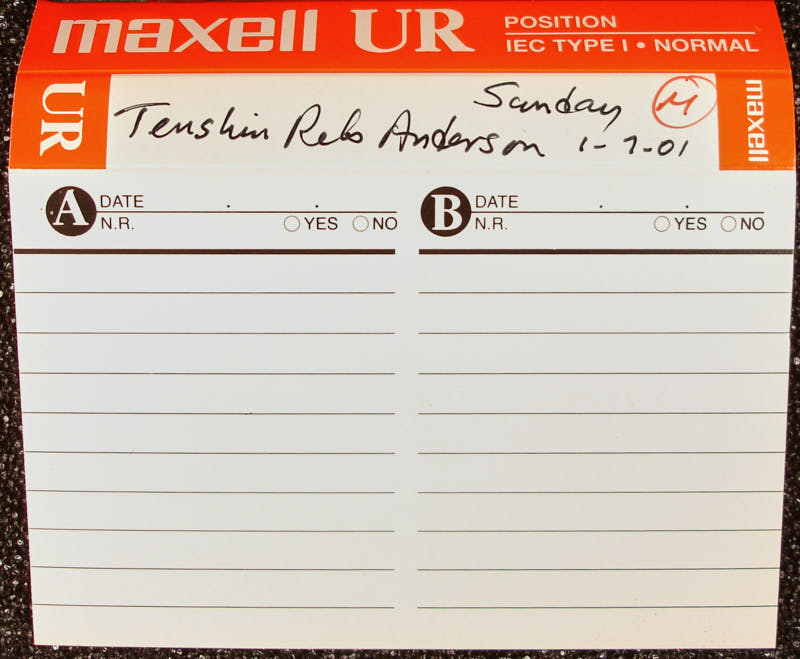 maxell UR POSITION
IEC TYPE I • NORMAL
UR
maxell
Sunday M
Tenshin Reb Anderson 1-7-01
A DATE . .
N.R. YES NO
B DATE . .
N.R. YES NO